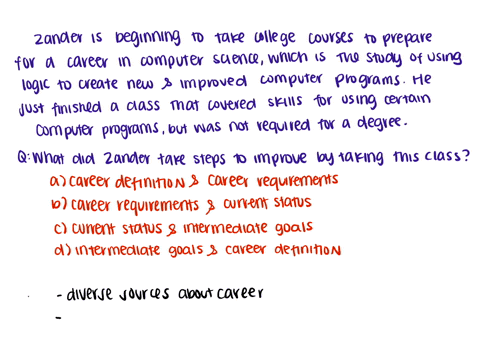 Zander is beginning to take college courses to prepare
for a career in computer science, which is the study of using
logic to create new & improved computer programs. He
just finished a class that covered skills for using certain
computer programs, but was not required for a degree.
Q: What did Zander take steps to improve by taking this class?
a) career definition & career requirements
b) career requirements & current status
c) current status & intermediate goals
d) intermediate goals & career definition
- diverse sources about career
-